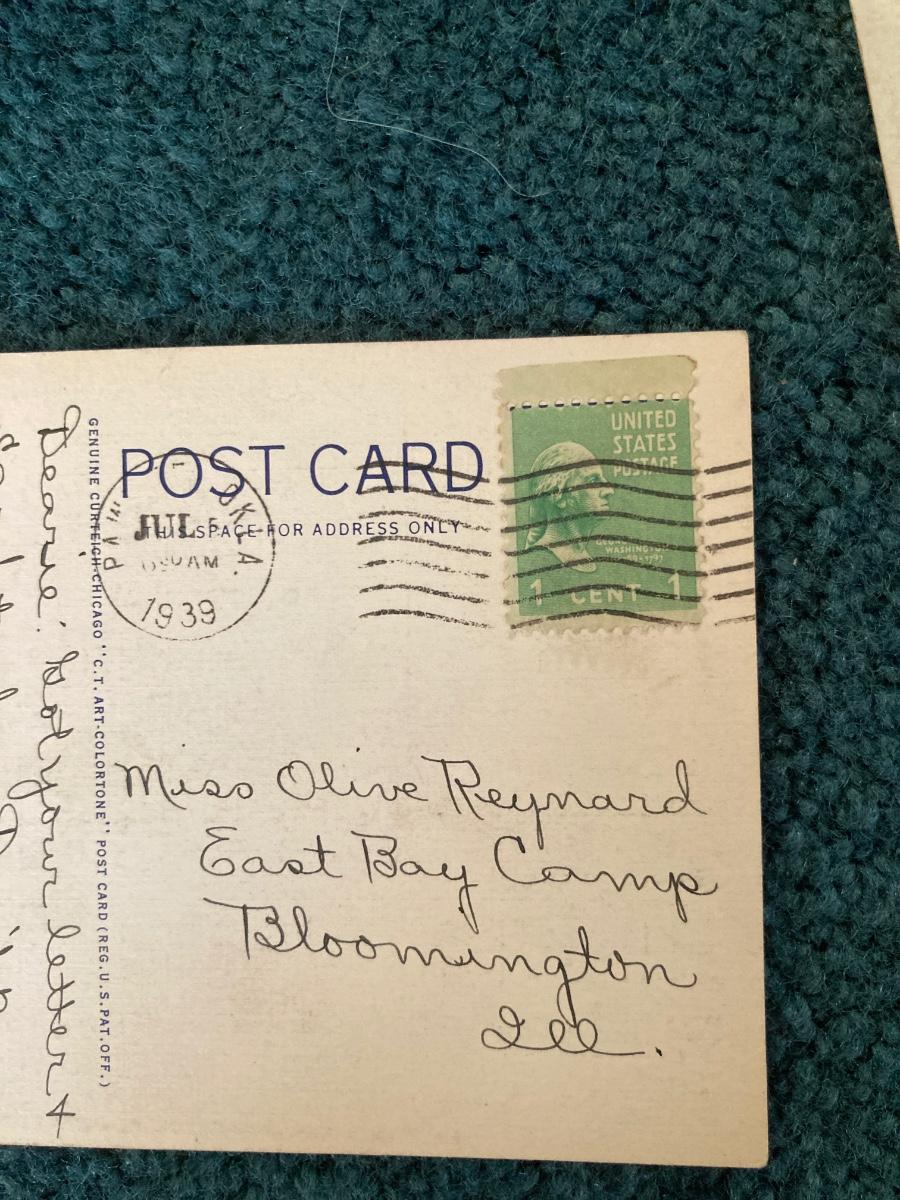 Dearie: Got your letter &
GENUINE CURTEICH-CHICAGO "C.T. ART-COLORTONE" POST CARD (REG. U.S. PAT. OFF.)
POST CARD
THIS SPACE FOR ADDRESS ONLY
JUL 5
AM
1939
UNITED
STATES
POSTAGE
GEORGE
WASHINGTON
1 CENT 1
Miss Olive Reynard
East Bay Camp
Bloomington
Ill.